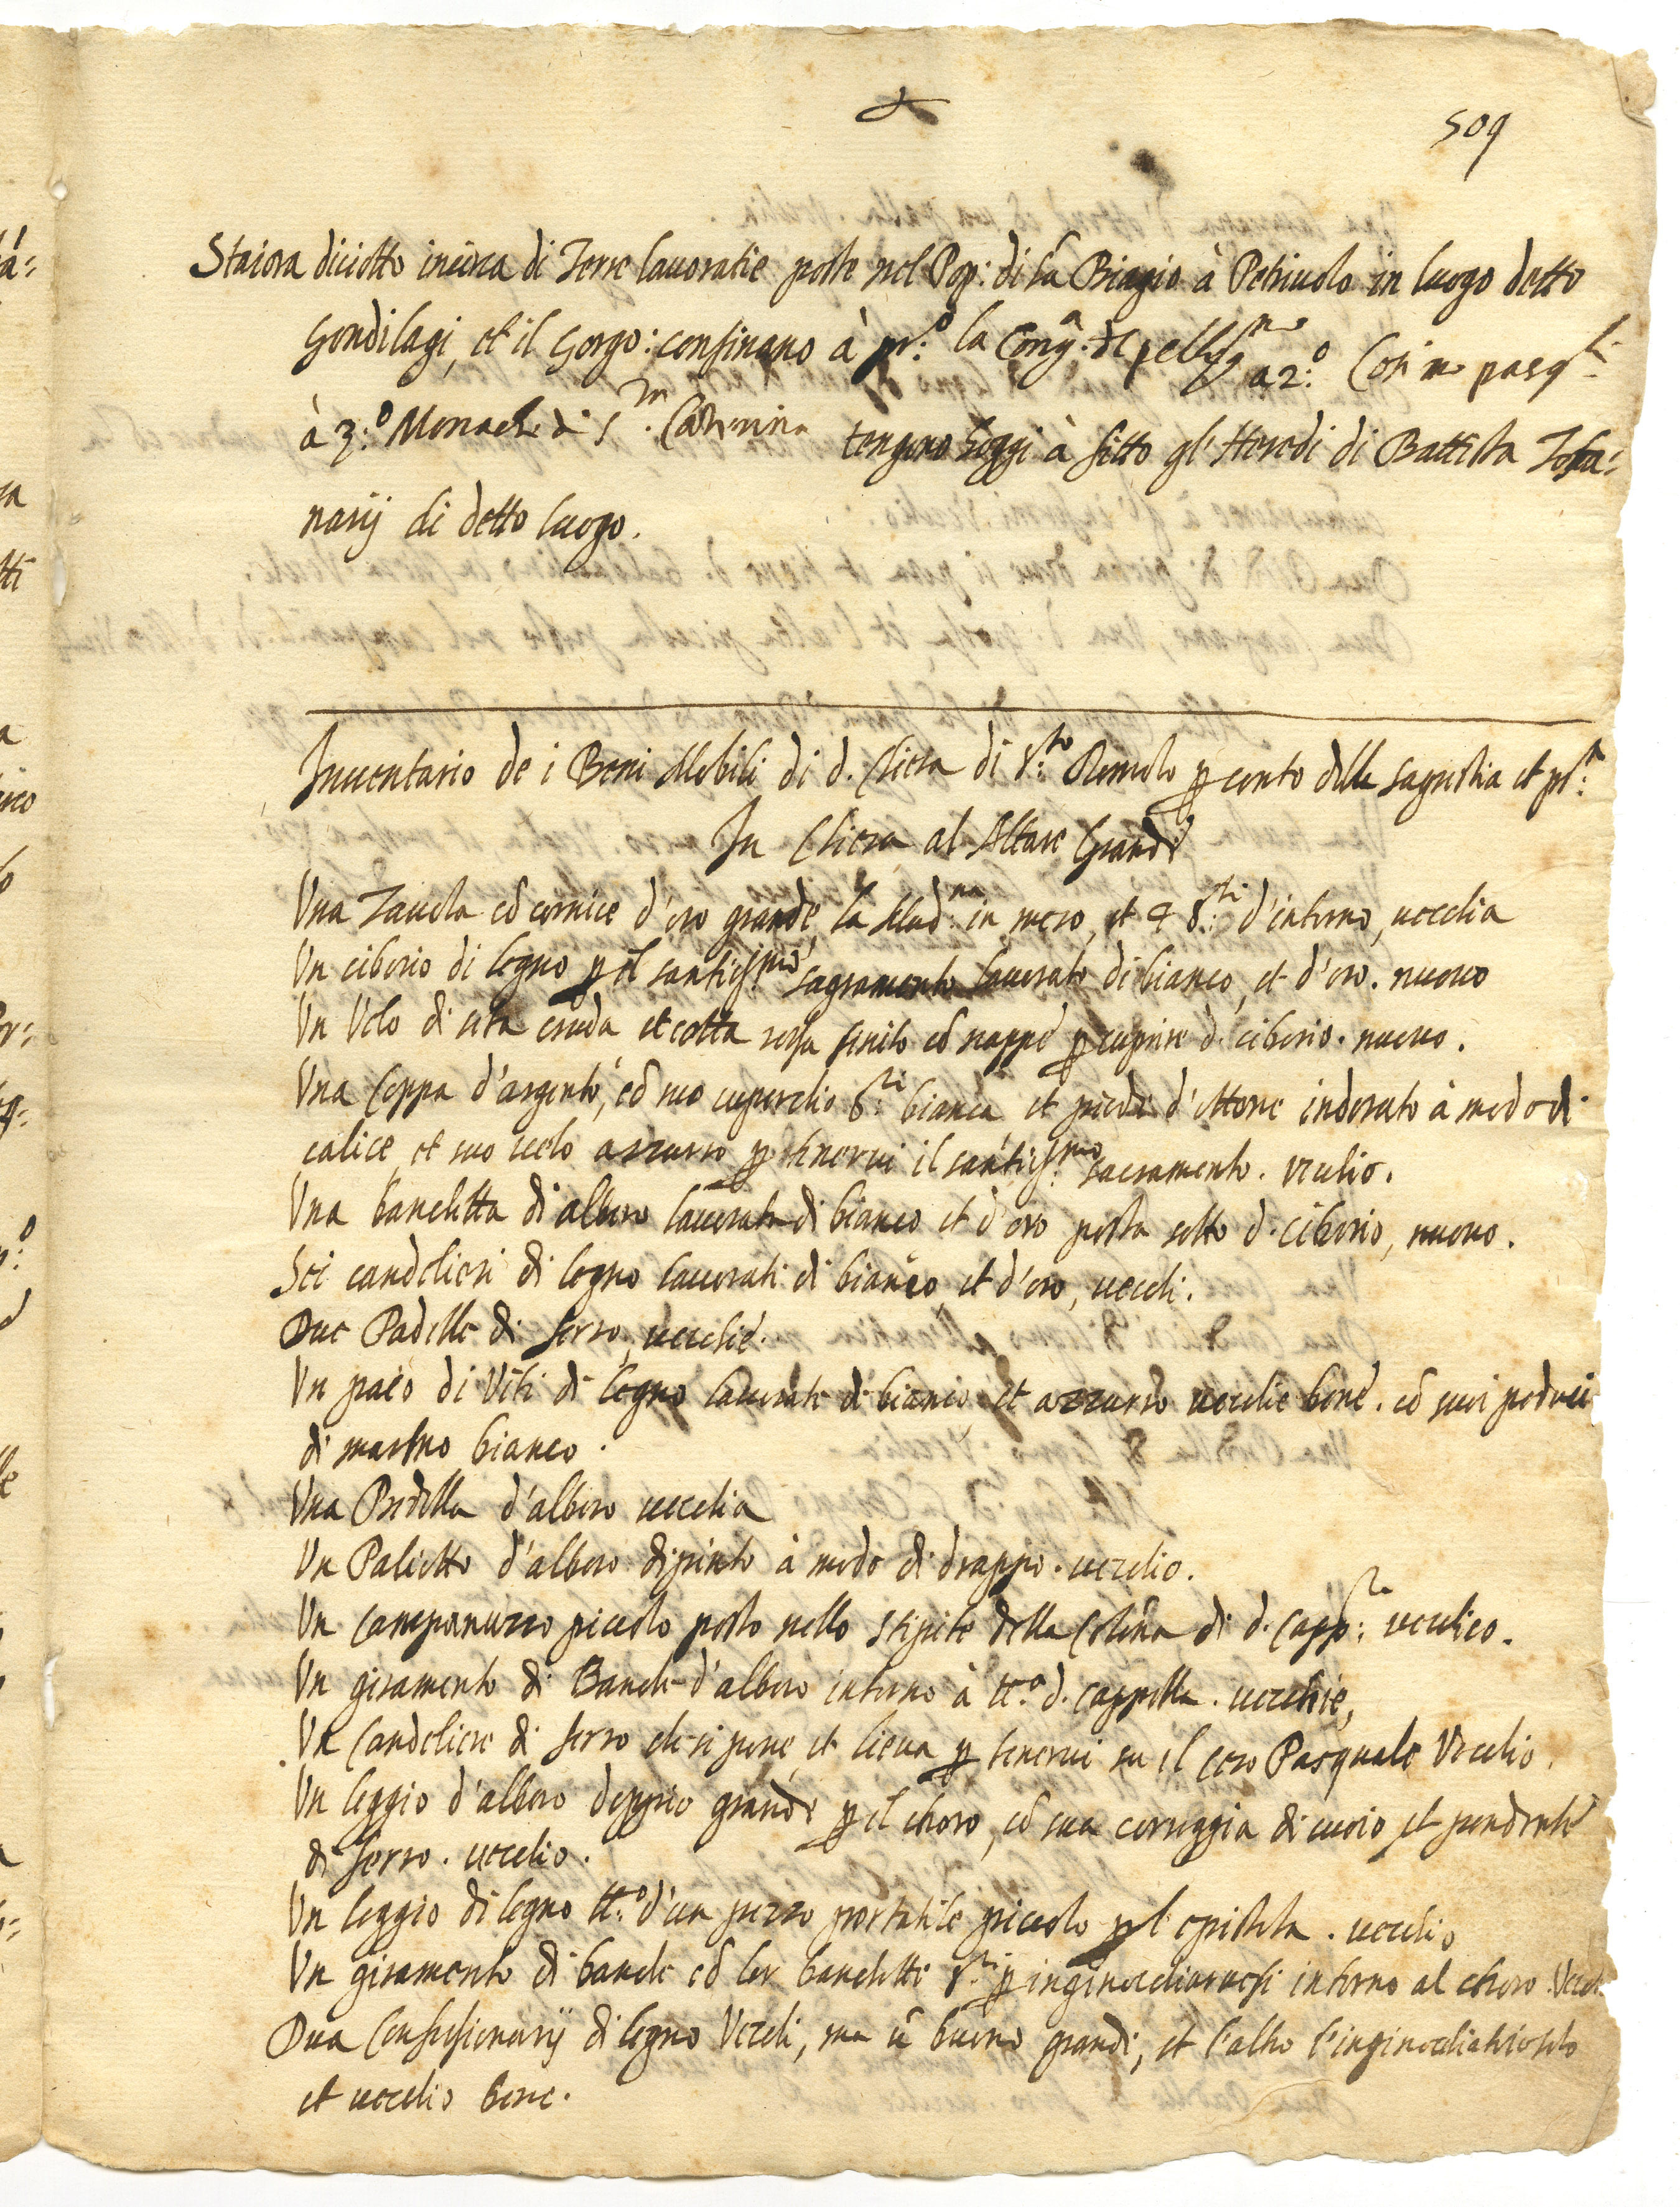 509
Staiora diciotto incirca di Terre lauoratie poste nel Pop: di Sā Biagio à Petriuolo in luogo detto
Gondilagi, et il Gorgo: confinano à pr:º la Comp:ª di a 2:º Cosimo pasq:li
à 3:º Monache di S.ta Caterina tengono hoggi à fitto gl' Heredi di Battista
narij di detto luogo.
Inuentario de i Beni Mobili di d. Chiesa di S:to Romolo p conto della sagrestia et pr:ª
In Chiesa al Altare Grande
Una Tauola cō cornice d'oro grande, la Mad:na in mezo, et 4 S:ti d'intorno, uecchia
Un ciborio di legno p il santiss:mo sagramento lauorato di bianco, et d'oro. nuouo
Un Velo di seta cruda et cotta rossa finito cō nappe p cuprire d. ciborio. nuouo.
Una Coppa d'argento, cō suo cuperchio S:li bianca et piede d'ottone indorato à modo di
calice et suo uelo azzurro p tenerui il santiss:mo sacramento. uechio.
Una banchetta di albero lauorata di bianco et d'oro posta sotto d. ciborio, nuouo.
Sei candelieri di legno lauorati di bianco, et d'oro, uecchi.
Due Padelle di ferro, uecchie.
Un paio di Viti di legno lauorate di bianco, et azzurro uecchie bene. cō suoi peducci
di marmo bianco.
Una Predella d'albero uecchia
Un Paliotto d'albero dipinto à modo di drappo. uecchio.
Un campanuzzo piccolo posto nello stipite della Colōna di d. Capp:la uecchico.
Un giramento di Banche d'albero intorno à tt:º d. cappella. uecchie,
Un Candeliere di ferro che si pone, et lieua p tenerui su il cero Pasquale Vecchio.
Un leggio d'albero doppio grande p il choro, cō sua coreggia di cuoio et pendente
di ferro. uecchio.
Un leggio di legno tt:º d'un pezzo portatile piccolo p l'epistola. uecchio
Un giramento di banche cō lor banchette S:li p inginocchiaruesi intorno al choro. Vecch
Dua Confessionarij di legno Vecchi, ma ū buono grandi, et l'altro l'inginocchiatoio solo
et uecchio bene.